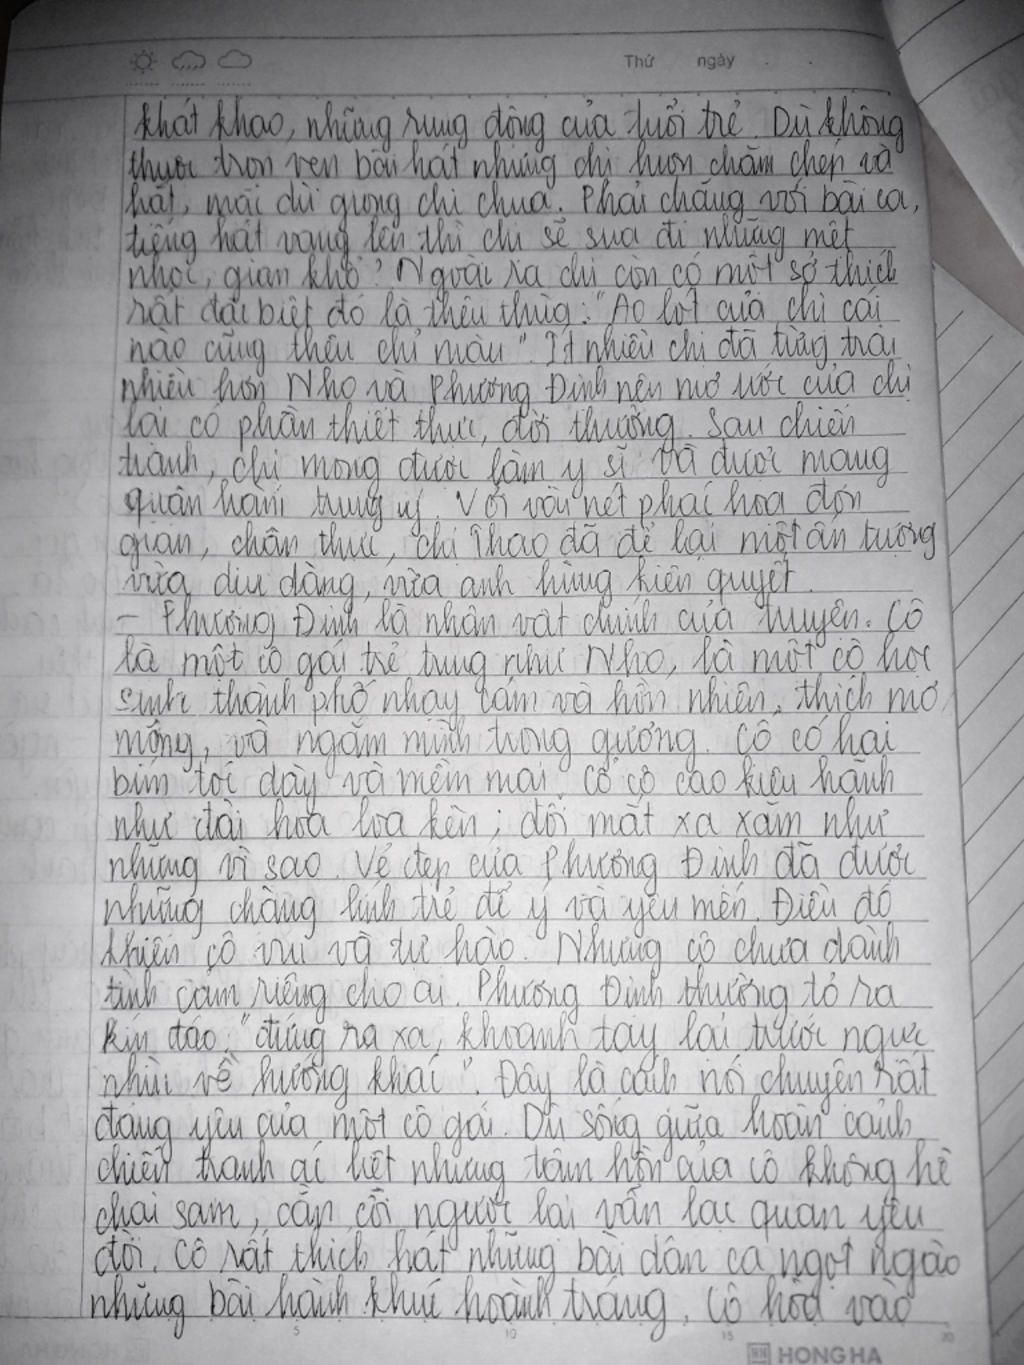 Thứ ngày
khát khao, những rung động của tuổi trẻ. Dù không
thuộc trọn vẹn bài hát nhưng chị luôn chăm chép và
hát, mặc dù giọng chị chua. Phải chăng với bài ca,
tiếng hát vang lên thì chị sẽ xua đi những mệt
nhọc, gian khổ? Ngoài ra chị còn có một sở thích
rất đặc biệt đó là thêu thùa: "Áo lót của chị cái
nào cũng thêu chỉ màu". Ít nhiều chị đã từng trải
nhiều hơn Nho và Phương Định nên mơ ước của chị
lại có phần thiết thực, đời thường. Sau chiến
tranh, chị mong được làm y sĩ và được mang
quân hàm trung úy. Với vài nét phác họa đơn
giản, chân thực, chị Thao đã để lại một ấn tượng
vừa dịu dàng, vừa anh hùng kiên quyết.
- Phương Định là nhân vật chính của truyện. Cô
là một cô gái trẻ trung như Nho, là một cô học
sinh thành phố nhạy cảm và hồn nhiên, thích mơ
mộng, và ngắm mình trong gương. Cô có hai
bím tóc dày và mềm mại. Cổ cô cao kiêu hãnh
như đài hoa loa kèn; đôi mắt xa xăm như
những vì sao. Vẻ đẹp của Phương Định đã được
những chàng lính trẻ để ý và yêu mến. Điều đó
khiến cô vui và tự hào. Nhưng cô chưa dành
tình cảm riêng cho ai. Phương Định thường tỏ ra
kín đáo: "đứng ra xa, khoanh tay lại trước ngực
nhìn về hướng khác". Đây là cách nói chuyện rất
đáng yêu của một cô gái. Dù sống giữa hoàn cảnh
chiến tranh ác liệt nhưng tâm hồn của cô không hề
chai sạm, cằn cỗi ngược lại vẫn lạc quan yêu
đời. Cô rất thích hát những bài dân ca ngọt ngào
những bài hành khúc hoành tráng. Cô hòa vào
5 10 15 20
HONG HA